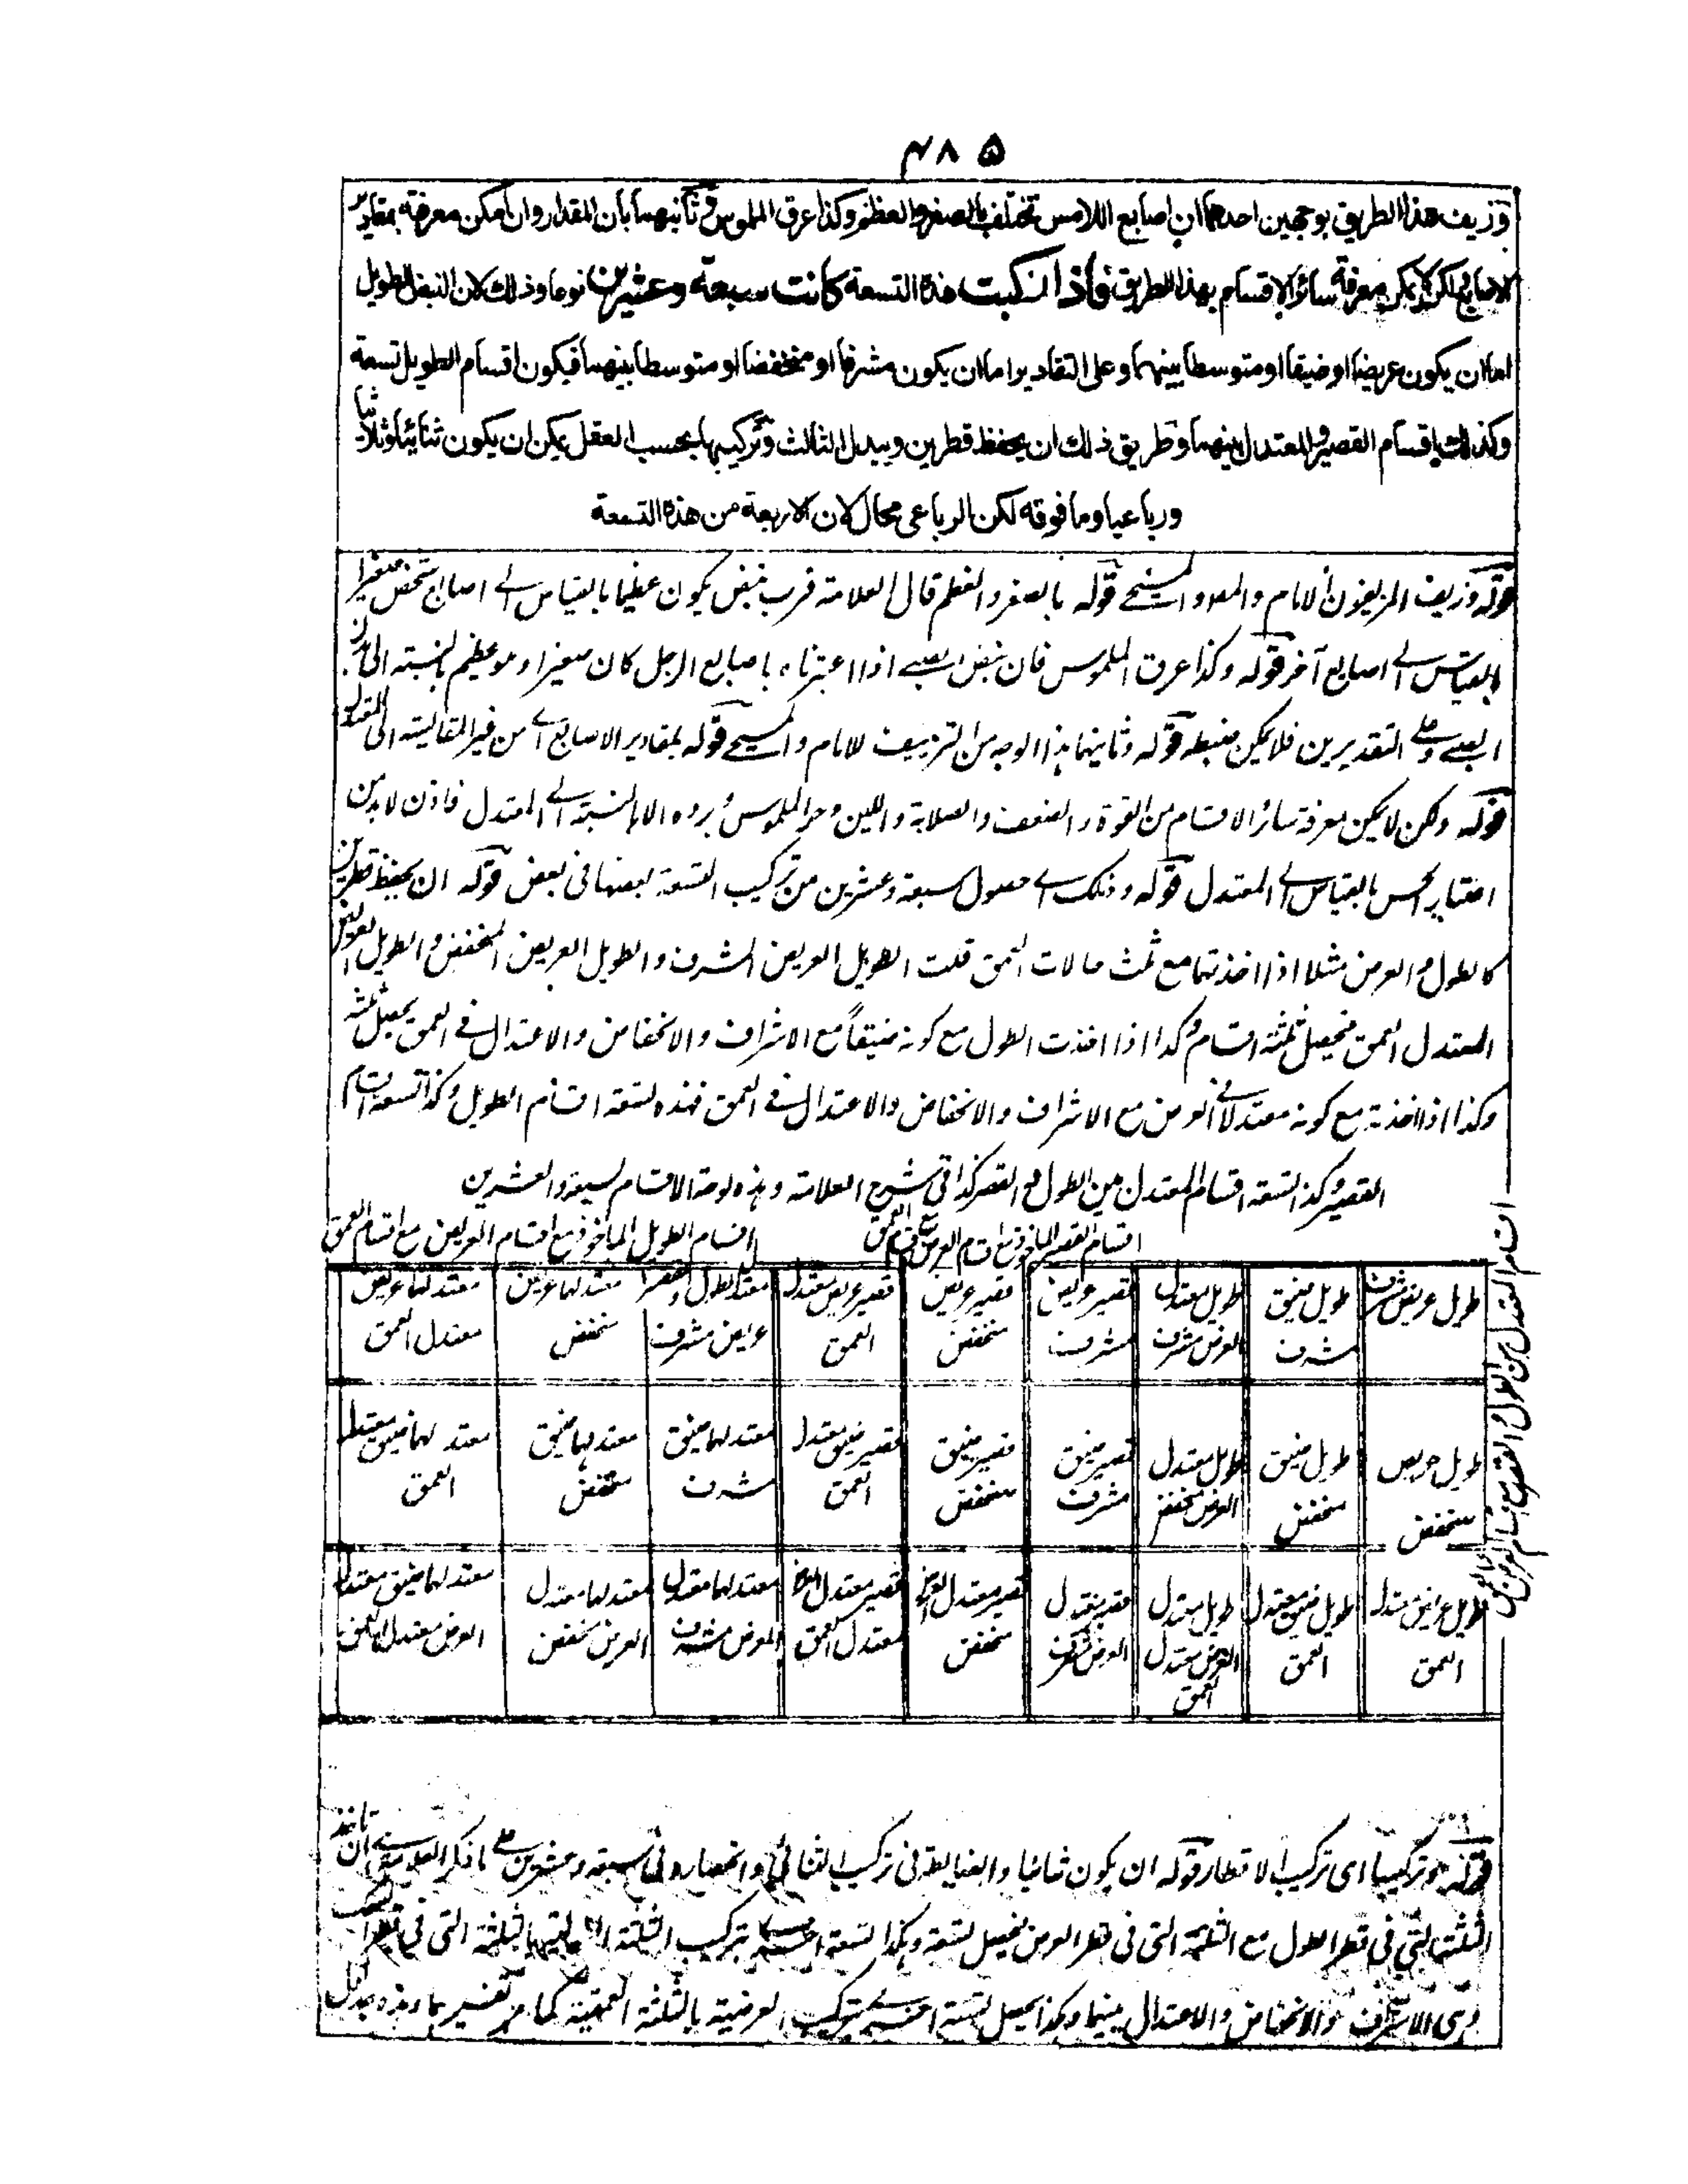 ۴۸۵
وزيف هذا الطريق بوجهين احدهما ان اصابع اللامس تختلف بالصغر والعظم وكذا عرق الملموس وثانيهما بان المقدار وان امكن معرفته بمقادير
الاصابع لكن لا يمكن معرفة سائر الاقسام بهذا الطريق فاذا ركبت هذه التسعة كانت سبعة وعشرين نوعا وذلك لان النبض الطويل
اما ان يكون عريضا او ضيقا او متوسطا بينهما وعلى التقادير اما ان يكون مشرفا او منخفضا او متوسطا بينهما فيكون اقسام الطويل تسعة
وكذلك اقسام القصير والمعتدل بينهما وطريق ذلك ان يحفظ قطرين ويبدل الثالث وتركيبها بحسب العقل يمكن ان يكون ثنائيا وثلاثيا
ورباعيا وما فوقه لكن الرباعي محال لان الاربعة من هذه التسعة
قوله وزيف المزيفون الامام والمسيحى قوله بالصغر والعظم قال العلامة فرب نبض يكون عظيما بالقياس الى اصابع شخص صغيرا
بالقياس الى اصابع آخر قوله وكذا عرق الملموس فان نبض الصبى اذا اعتبرناه باصابع الرجل كان صغيرا وهو عظيم بالنسبة الى بدن
الصبى وعلى التقديرين فلا يمكن ضبطه قوله وثانيهما هذا الوجه من التزييف للامام والمسيحى قوله بمقادير الاصابع اى من غير المقايسة الى المعتدل
قوله ولكن لا يمكن معرفة سائر الاقسام من القوة والضعف والصلابة واللين وحر الملموس وبرده الا بالنسبة الى المعتدل فاذن لا بد من
اعتبار الحس بالقياس الى المعتدل قوله وذلك اى حصول سبعة وعشرين من تركيب التسعة بعضها فى بعض قوله ان يحفظ قطرين
كالطول والعرض مثلا اذا اخذتهما مع ثلث حالات العمق قلت الطويل العريض المشرف والطويل العريض المنخفض والطويل العريض
المعتدل العمق فيحصل ثلثة اقسام وكذا اذا اخذت الطول مع كونه ضيقاً مع الاشراف والانخفاض والاعتدال فى العمق يحصل ثلثة
وكذا اذا اخذته مع كونه معتدلا فى العرض مع الاشراف والانخفاض والاعتدال فى العمق فهذه تسعة اقسام الطويل وكذا تسعة اقسام
القصير وكذا التسعة اقسام المعتدل بين الطول والقصر كذا فى شرح العلامة وهذه لوحة الاقسام لسبعة والعشرين
اقسام القصير الماخوذ مع اقسام العريض مع اقسام العمق
اقسام الطويل الماخوذ مع اقسام العريض مع اقسام العمق
اقسام المعتدل من الطول والقصر مع اقسام العرض
طويل عريض مشرف
طويل ضيق مشرف
طويل معتدل العرض مشرف
قصير عريض مشرف
قصير عريض منخفض
قصير عريض معتدل العمق
معتدل الطول والقصر عريض مشرف
معتدلهما عريض منخفض
معتدلهما عريض معتدل العمق
طويل عريض منخفض
طويل ضيق منخفض
طويل معتدل العرض منخفض
قصير ضيق مشرف
قصير ضيق منخفض
قصير ضيق معتدل العمق
معتدلهما ضيق مشرف
معتدلهما ضيق منخفض
معتدلهما ضيق معتدل العمق
طويل عريض معتدل العمق
طويل ضيق معتدل العمق
طويل معتدل العرض معتدل العمق
قصير معتدل العرض مشرف
قصير معتدل العرض منخفض
قصير معتدل العرض معتدل العمق
معتدلهما معتدل العرض مشرف
معتدلهما معتدل العرض منخفض
معتدلهما ضيق معتدل العرض معتدل العمق
قوله وتركيبها اى تركيب الاقطار قوله ان يكون ثنائيا والضابطة فى تركيب الثنائى وانحصاره فى سبعة وعشرين على ما ذكر العلامة ان تاخذ
الثلثة التى فى قطر الطول مع الثلثة التى فى قطر العرض يحصل تسعة وهكذا تسعة اخرى بتركيب الثلثة الطولية بالثلثة التى فى قطر العمق
وهى الاشراف والانخفاض والاعتدال بينهما وكذا يحصل تسعة اخرى بتركيب العرضية بالثلثة العمقية كما مر تفسيرها وهذه جدول